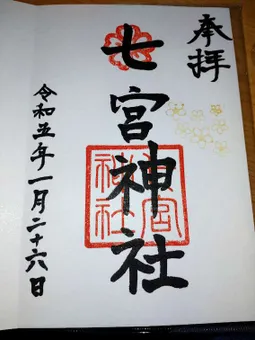 奉拝
七宮神社
令和五年一月二十六日